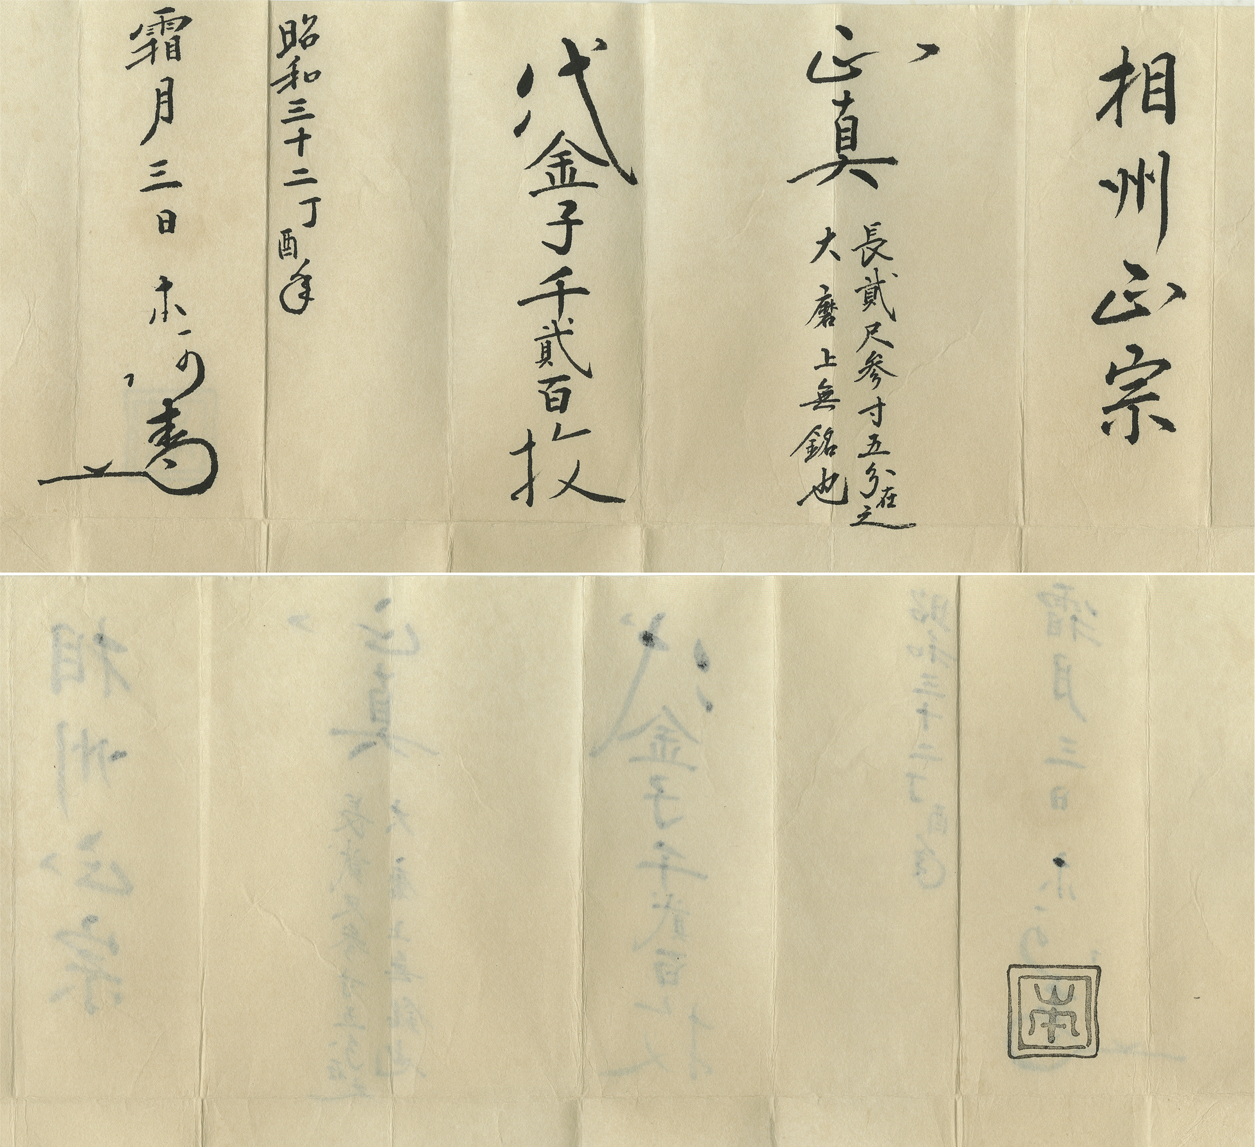 相州正宗
正真
長貳尺参寸五分在之
大磨上無銘也
代金子千貳百枚
昭和三十二丁酉年
霜月三日 本阿
本